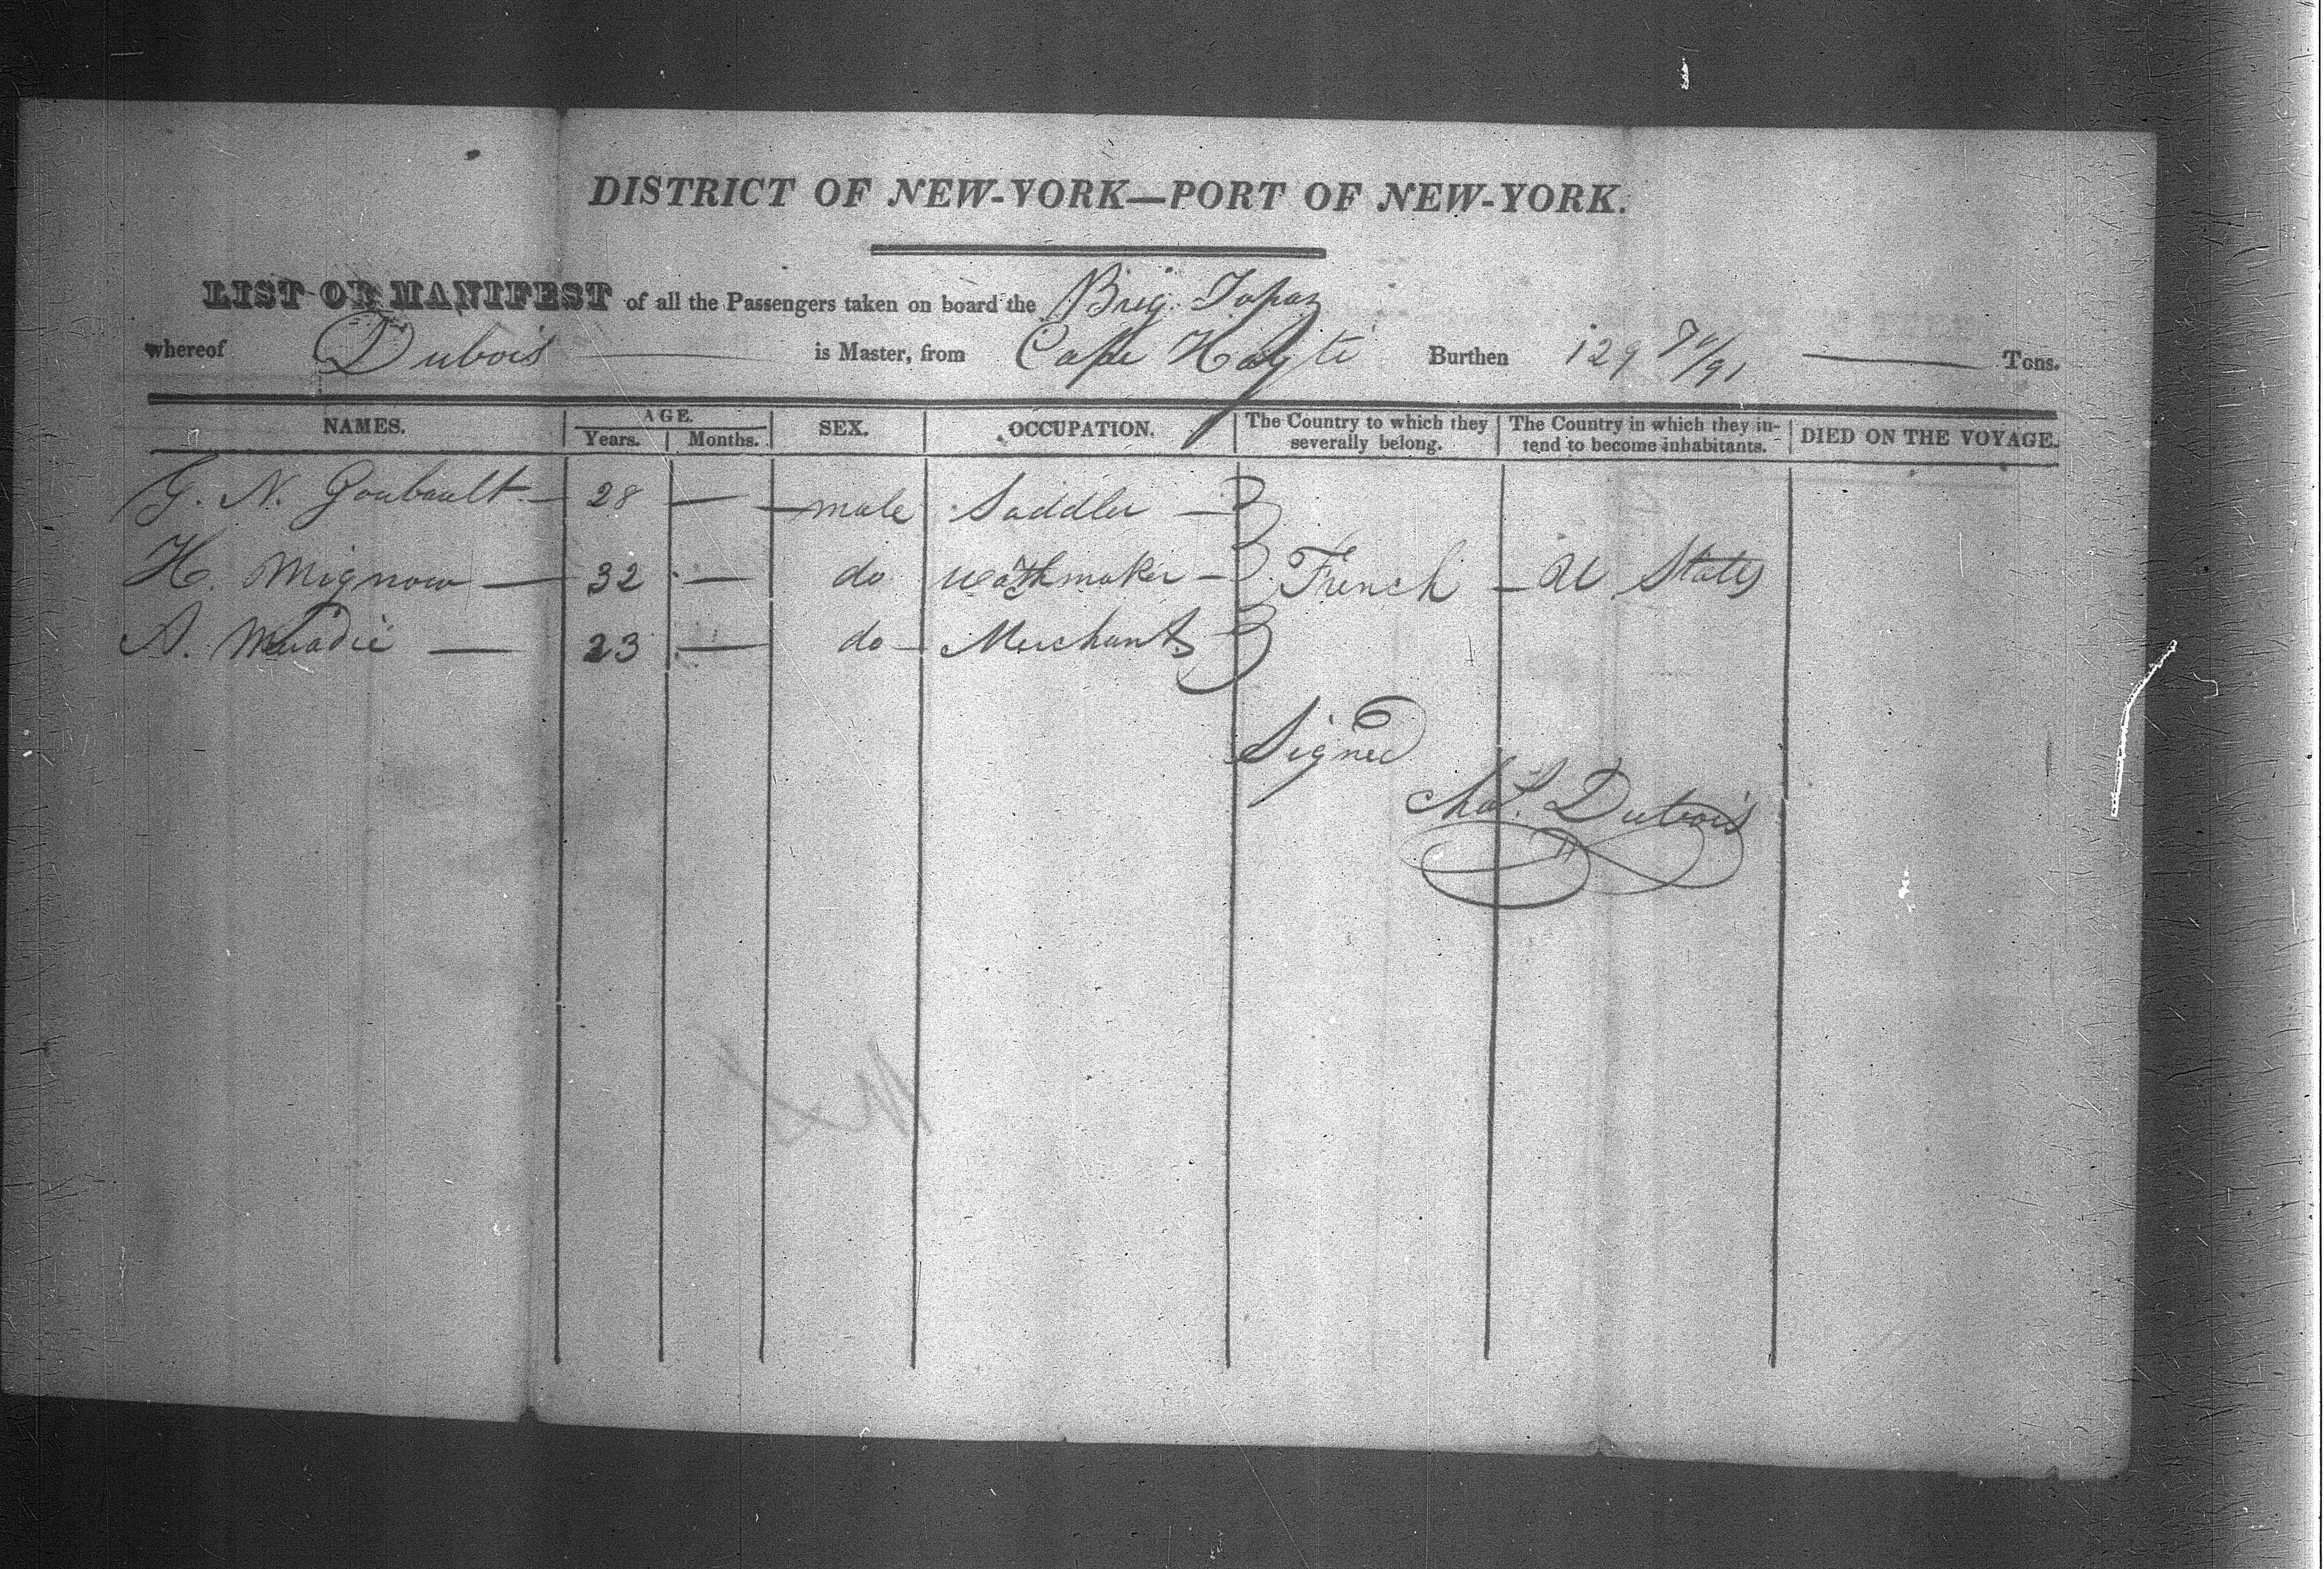 DISTRICT OF NEW-YORK—PORT OF NEW-YORK.
LIST OR MANIFEST of all the Passengers taken on board the Brig. Topaz
whereof Dubois is Master, from Cape Hayti Burthen 129 /91 Tons.
NAMES. AGE. Years. Months. SEX. OCCUPATION. The Country to which they severally belong. The Country in which they intend to become inhabitants. DIED ON THE VOYAGE.
G. N. Goubault — 28 — male Saddler —
H. Mignow — 32 — do wathmaker — French — U States
A. — 23 — do — Merchant
Signed
Chas. Dubois